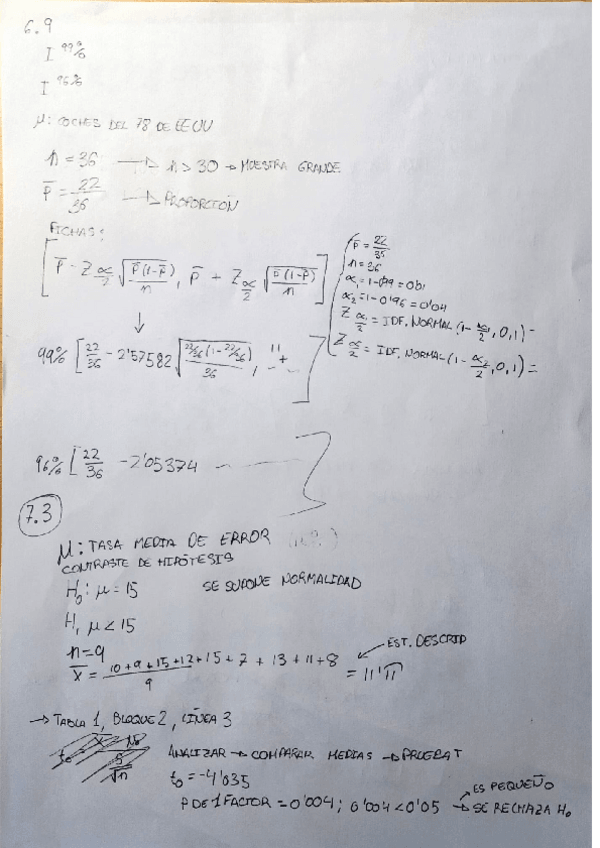 6.9
I 99%
I 96%
μ: COCHES DEL 78 DE EEUU
n = 36 → n > 30 → MUESTRA GRANDE
p̄ = 22/36 → PROPORCIÓN
FICHAS:
[p̄ - Z α/2 √(p̄(1-p̄)/n), p̄ + Z α/2 √(p̄(1-p̄)/n)]
p̄ = 22/36
n = 36
α = 1-0'99 = 0'01
α2 = 1-0'96 = 0'04
Z α1/2 = IDF. NORMAL (1 - α1/2, 0, 1) =
Z α2/2 = IDF. NORMAL (1 - α2/2, 0, 1) =
↓
99% [22/36 - 2'57582 √(22/36 (1-22/36)/36), " + ]
96% [22/36 - 2'05374 ]
7.3
μ: TASA MEDIA DE ERROR
CONTRASTE DE HIPÓTESIS
H₀: μ = 15 SE SUPONE NORMALIDAD
H₁ μ < 15
n = 9
x̄ = (10 + 9 + 15 + 12 + 15 + 7 + 13 + 11 + 8)/9 = 11'11 ← EST. DESCRIP
→ TABLA 1, BLOQUE 2, LÍNEA 3
ANALIZAR → COMPARAR MEDIAS → PRUEBA T
t₀ = -4'035
P DE 1 FACTOR = 0'004; 0'004 < 0'05 → ES PEQUEÑO
→ SE RECHAZA H₀